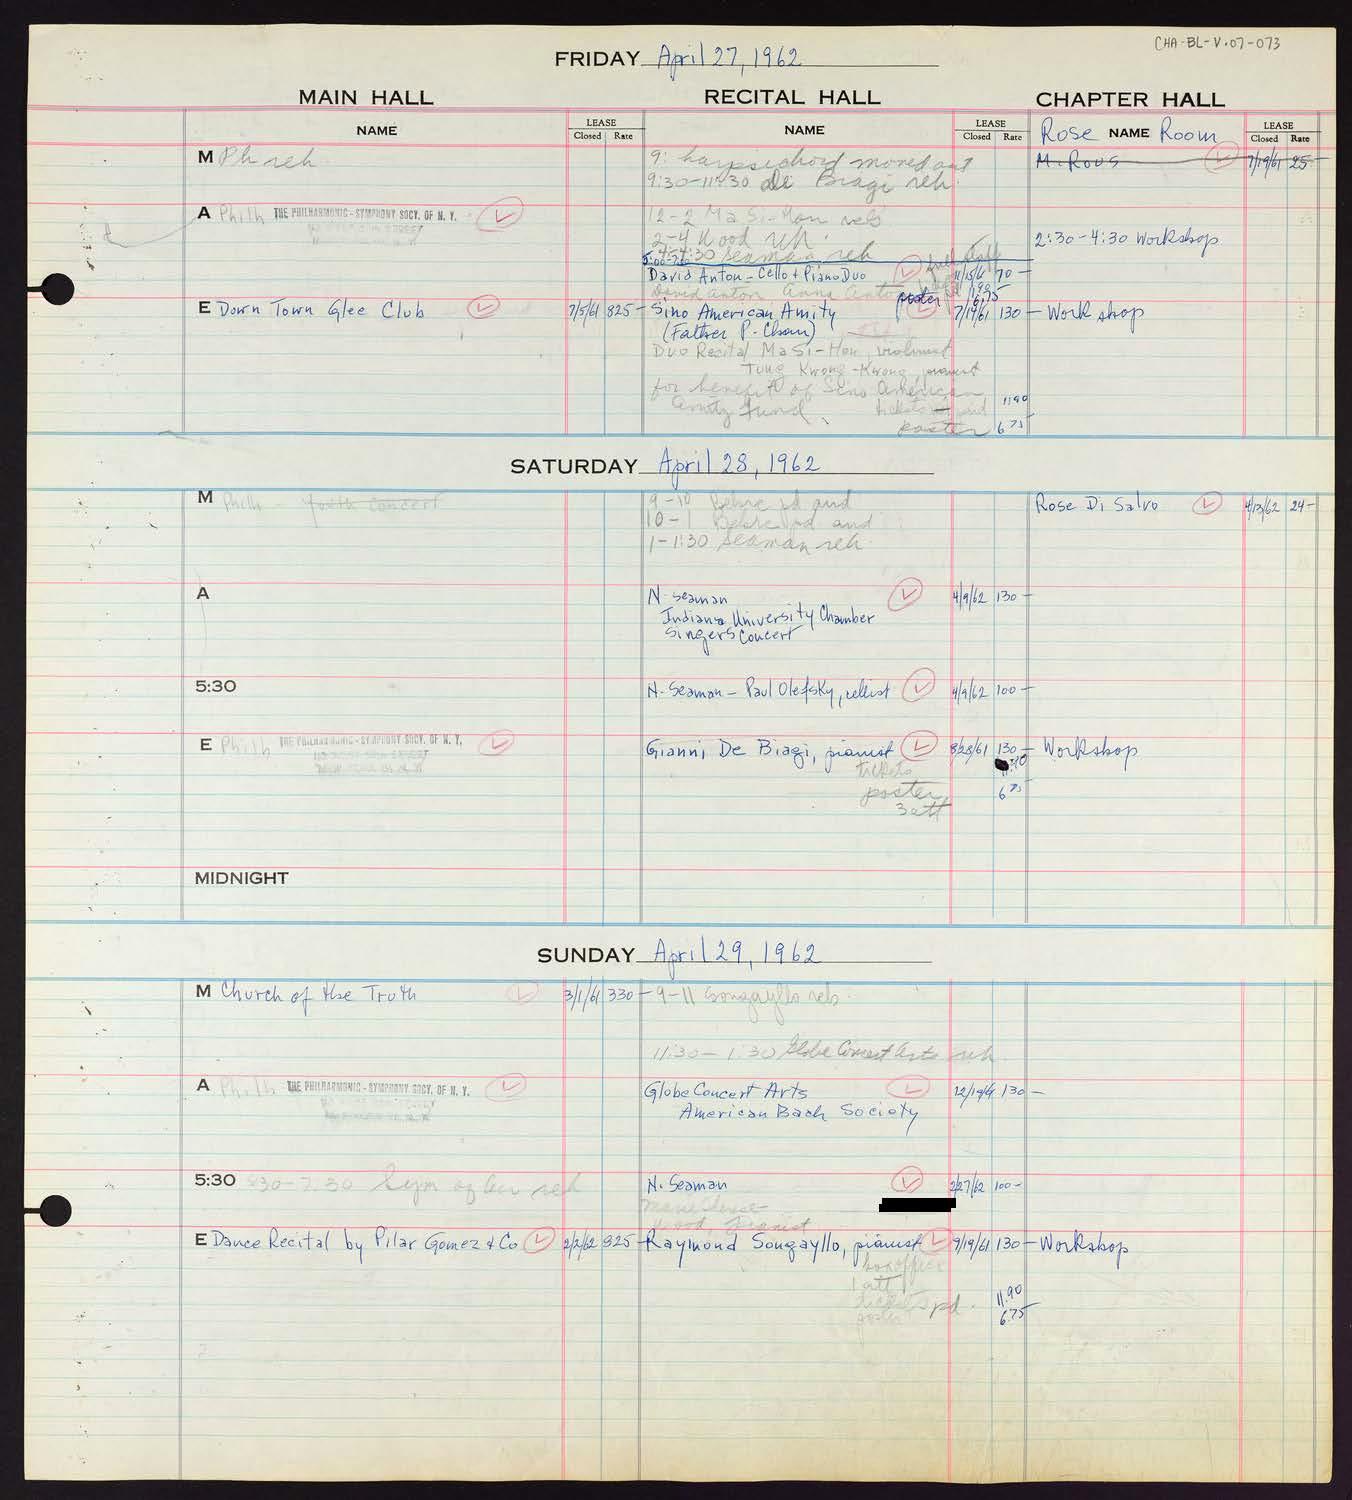 CHA-BL-V.07-073
FRIDAY April 27, 1962
MAIN HALL RECITAL HALL CHAPTER HALL
NAME LEASE Closed Rate NAME LEASE Closed Rate Rose NAME Room LEASE Closed Rate
M Ph reh 9: harpsichord moved out M. Rous 7/19/61 25-
9:30-11:30 de Biagi reh.
A Philh THE PHILHARMONIC-SYMPHONY SOCY. OF N. Y. 12-2 Ma Si-Hon reh
2-4 Wood reh. 2:30-4:30 Workshop
4-4:30 Seaman reh
David Anton - Cello + Piano Duo 70-
David Anton Anna Anton
poster 6.75
E Down Town Glee Club 7/5/61 825- Sino American Amity 7/19/61 130- Workshop
(Father P. Chan)
Duo Recital Ma Si-Hon, violinist
Tung Kwong-Kwong, pianist
for benefit of Sino American
Amity Fund tickets pd 11.90
poster 6.75
SATURDAY April 28, 1962
M Philh - Youth Concert 9-10 Behre pd and Rose Di Salvo 4/13/62 24-
10-1 Behre pd and
1-1:30 Seaman reh.
A N. Seaman 4/9/62 130-
Indiana University Chamber
Singers Concert
5:30 N. Seaman - Paul Olefsky, cellist 4/9/62 100-
E Philh THE PHILHARMONIC-SYMPHONY SOCY. OF N. Y. Gianni De Biagi, pianist 8/28/61 130- Workshop
tickets
poster 6.75
3 att
MIDNIGHT
SUNDAY April 29, 1962
M Church of the Truth 3/1/61 330- 9-11 Songayllo reh.
11:30-1:30 Globe Concert Arts reh
A Philh THE PHILHARMONIC-SYMPHONY SOCY. OF N. Y. Globe Concert Arts 12/19/61 130-
American Bach Society
5:30 N. Seaman 2/27/62 100-
Wood, pianist
E Dance Recital by Pilar Gomez & Co 2/2/62 825- Raymond Songayllo, pianist 9/19/61 130- Workshop
box office
1 att
tickets pd. 11.90
poster 6.75